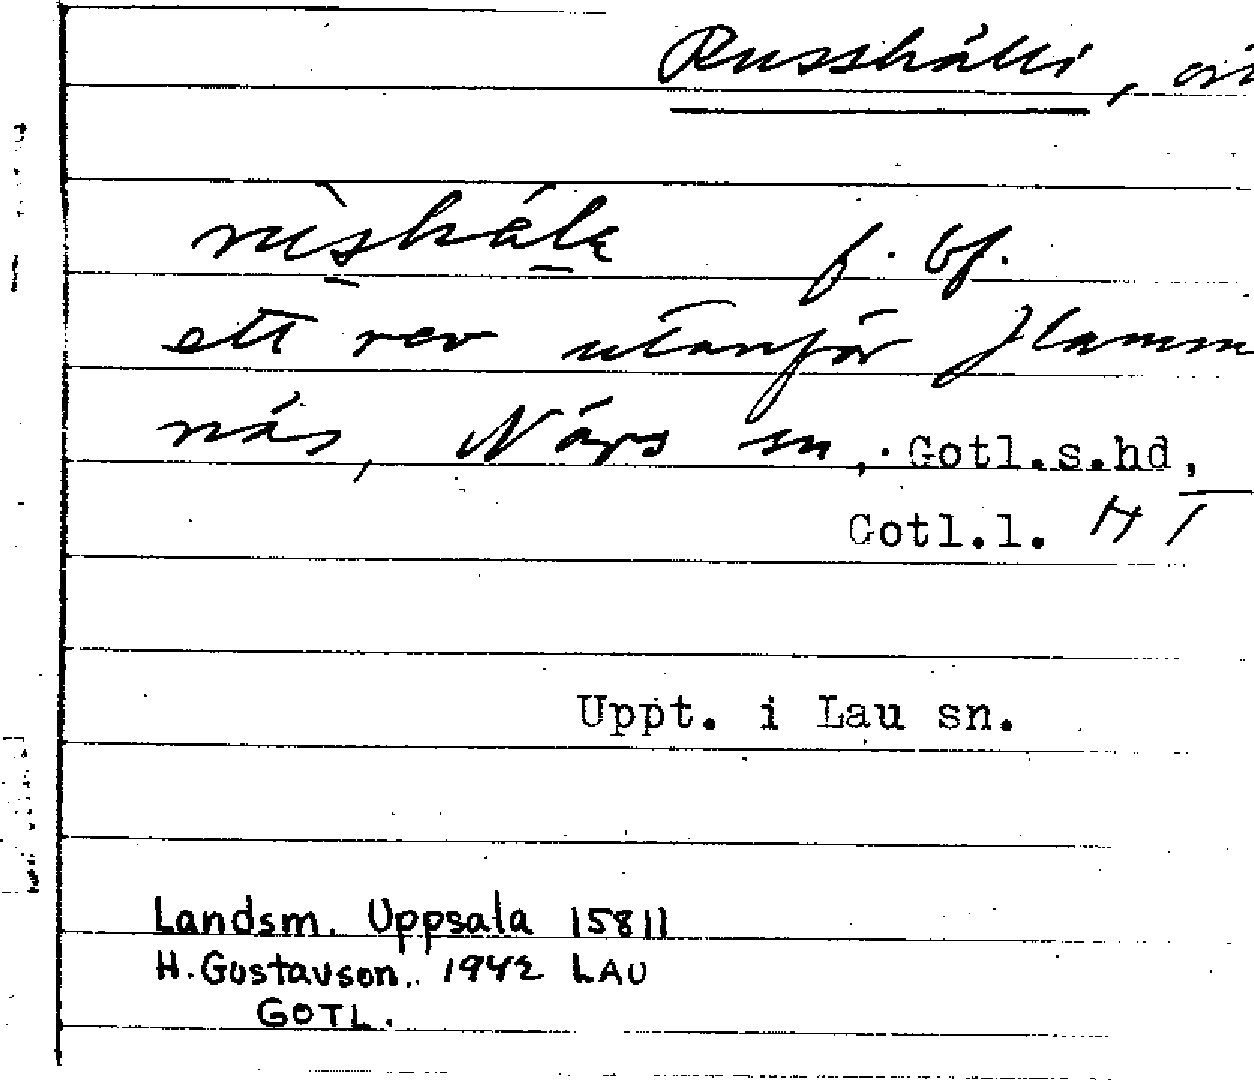 Russhälli,
rùshäle f. bf.
ett rev utanför Hamm
näs, Närs sn, Gotl.s.hd,
Gotl.l.
Uppt. i Lau sn.
Landsm. Uppsala 15811
H. Gustavson. 1942 LAU
GOTL.